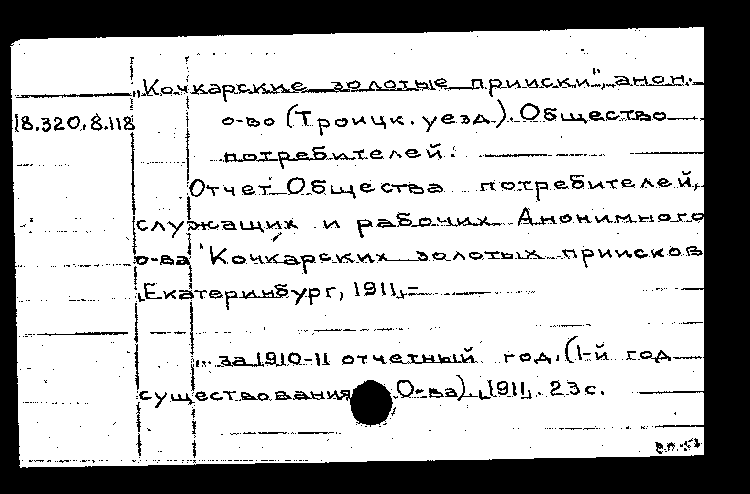 „Кочкарские золотые прииски", анон.
18.320.8.118 о-во (Троицк. уезд). Общество
потребителей.
Отчет Общества потребителей,
служащих и рабочих Анонимного
о-ва Кочкарских золотых приисков
Екатеринбург, 1911,-
.. за 1910-11 отчетный год. (1-й год
существования О-ва). 1911. 23с.